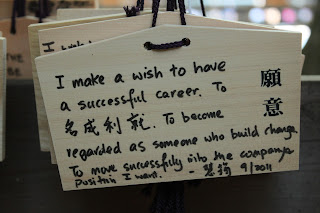 I make a wish to have
a successful career. To
名成利就. To become
regarded as someone who build change
To move successfully into the company
Position I want. - 9/2011
願意